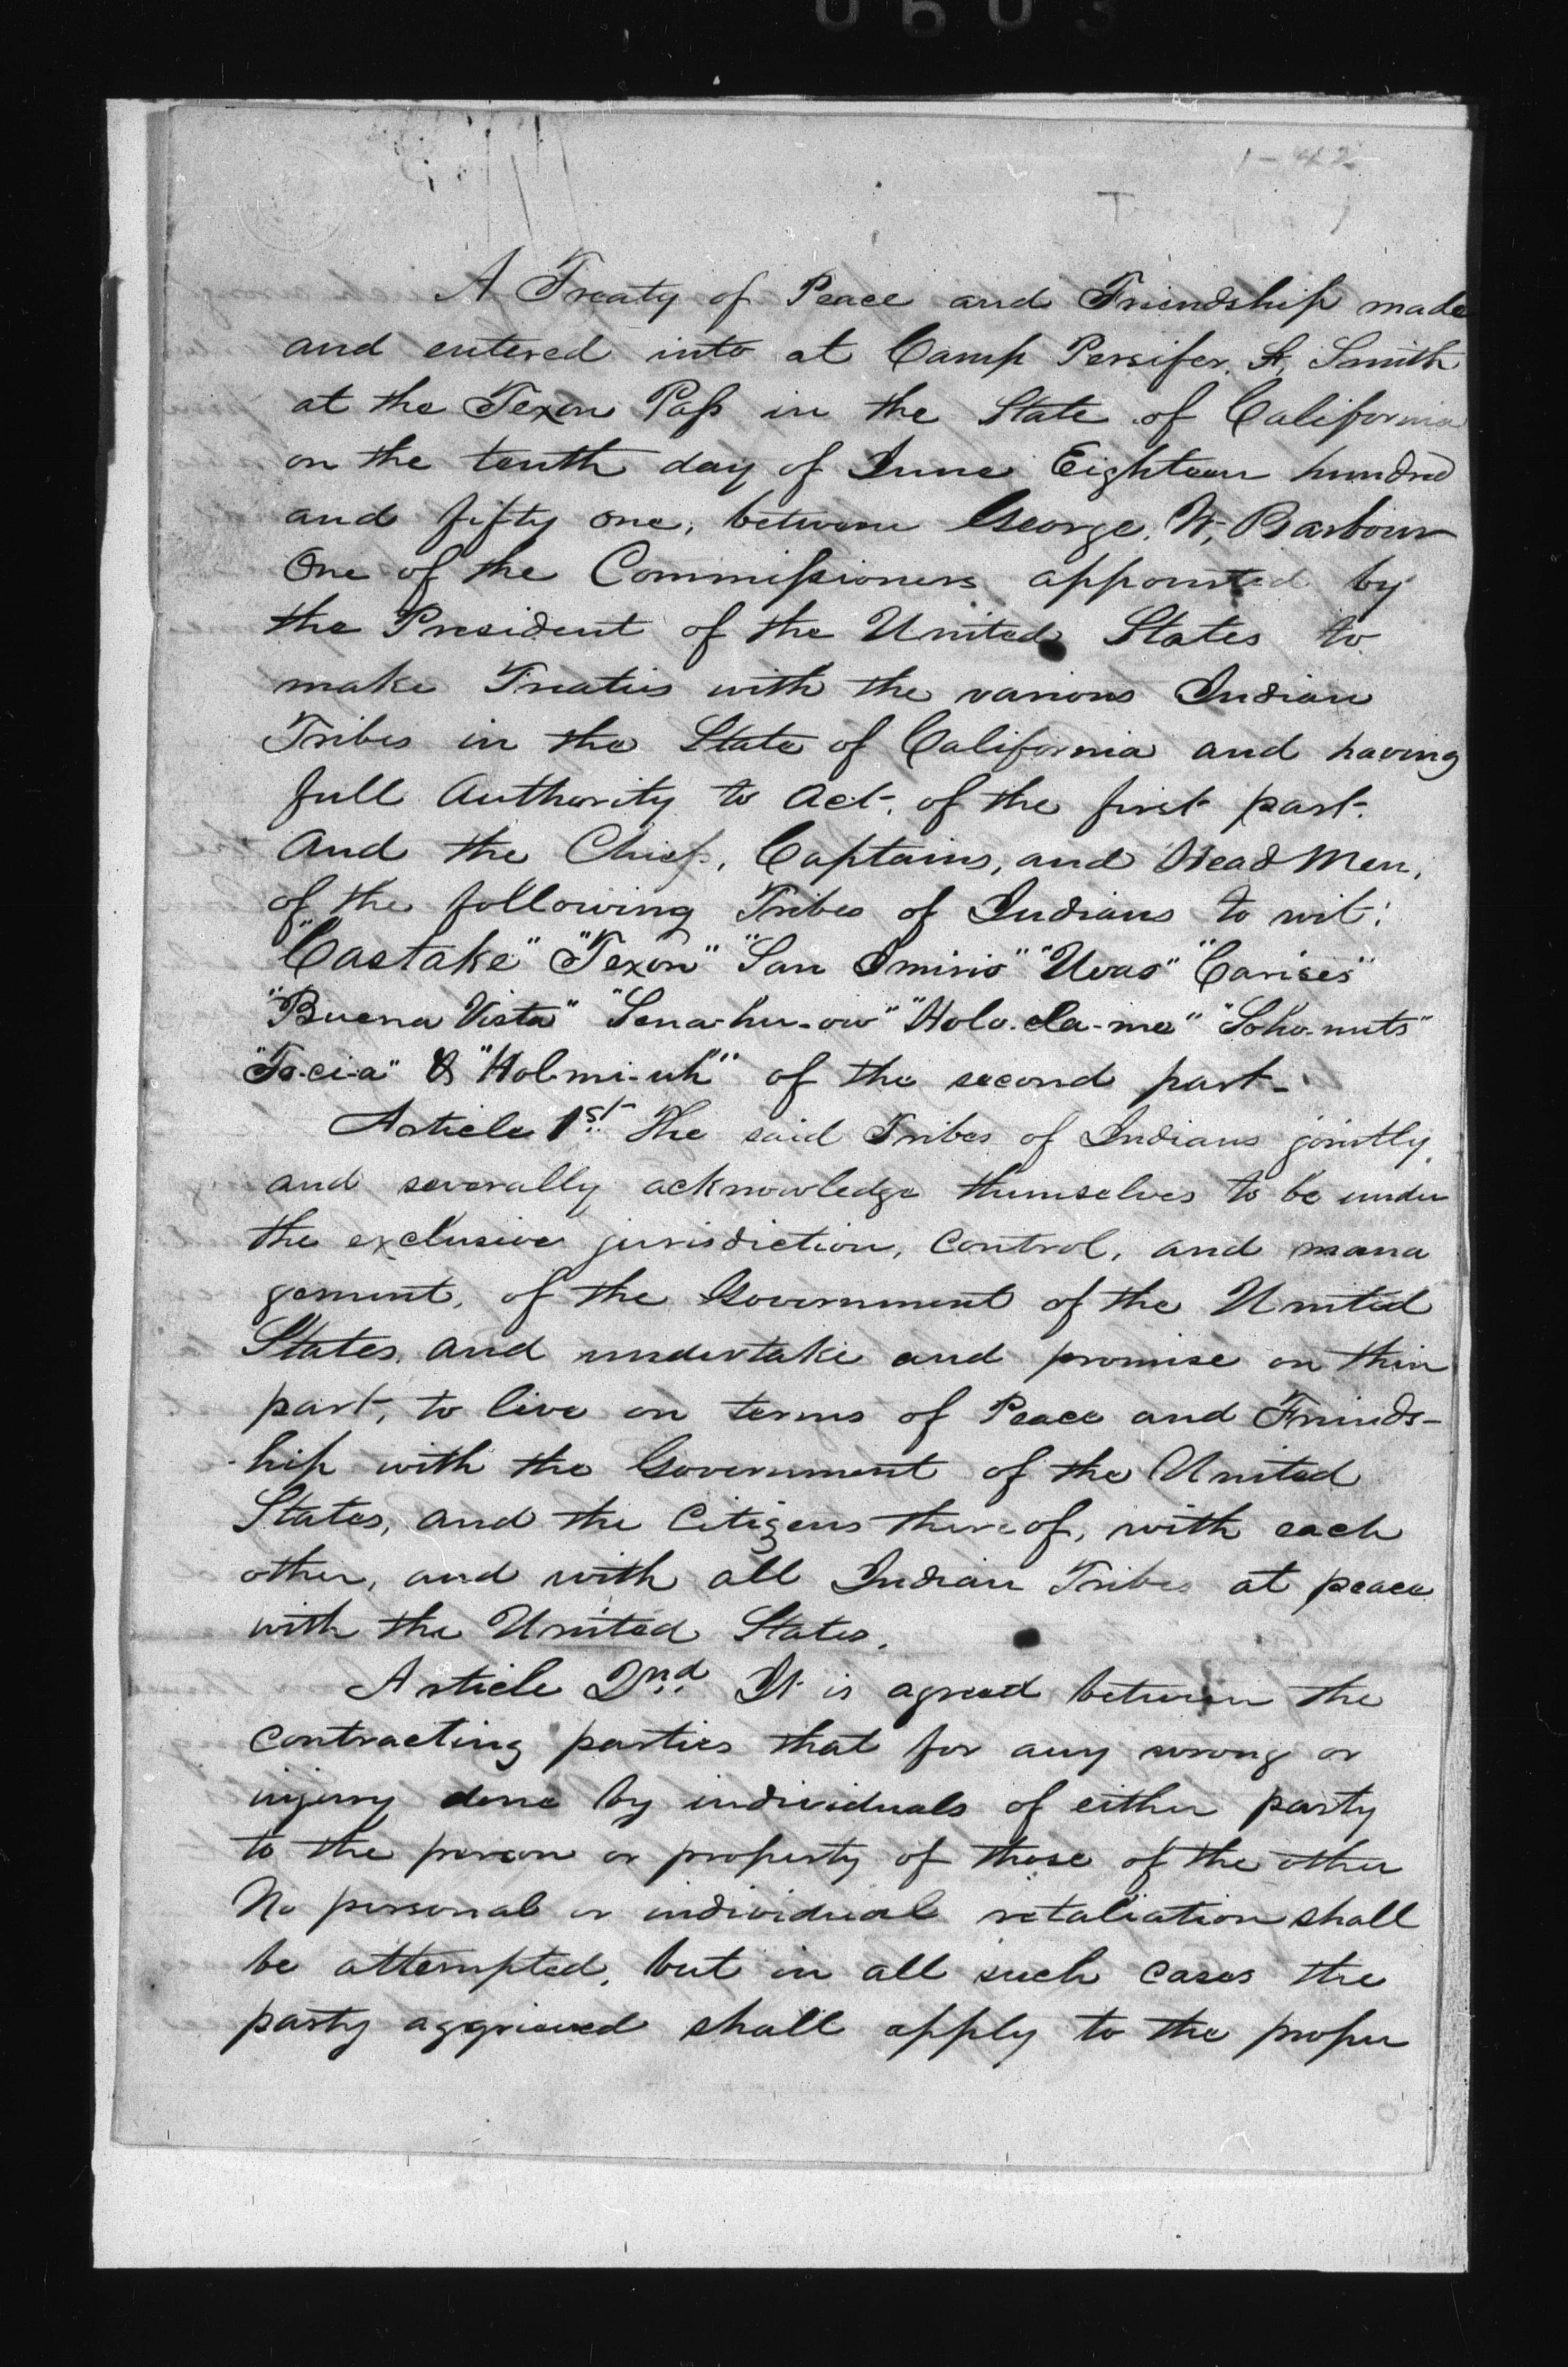 0603
1-42
A Treaty of Peace and Friendship made
and entered into at Camp Persifer. F. Smith
at the Texon Paſs in the State of California
on the tenth day of June Eighteen hundred
and fifty one, between George. W. Barbour
One of the Commiſsioners appointed by
the President of the United States to
make Treaties with the various Indian
Tribes in the State of California and having
full Authority to Act. of the first part.
And the Chiefs, Captains, and Head Men,
of the following Tribes of Indians to wit:
"Castake" "Texon" "San Imirio" "Uvas" "Carises"
"Buena Vista" "Sena-hu-ow" "Holo-cla-me" "Soho-nuts"
"To-ci-a" & "Hol-mi-uh" of the second part-
Article 1st The said Tribes of Indians jointly,
and severally acknowledge themselves to be under
the exclusive jurisdiction, Control, and mana
gement, of the Government of the United
States, and undertake and promise on their
part, to live on terms of Peace and Friends-
-hip with the Government of the United
States, and the Citizens thereof, with each
other, and with all Indian Tribes at peace
with the United States.
Article 2nd It is agreed between the
Contracting parties that for any wrong or
injury done by individuals of either party
to the person or property of those of the other
No personal or individual retaliation shall
be attempted, but in all such cases the
party aggrieved shall apply to the proper